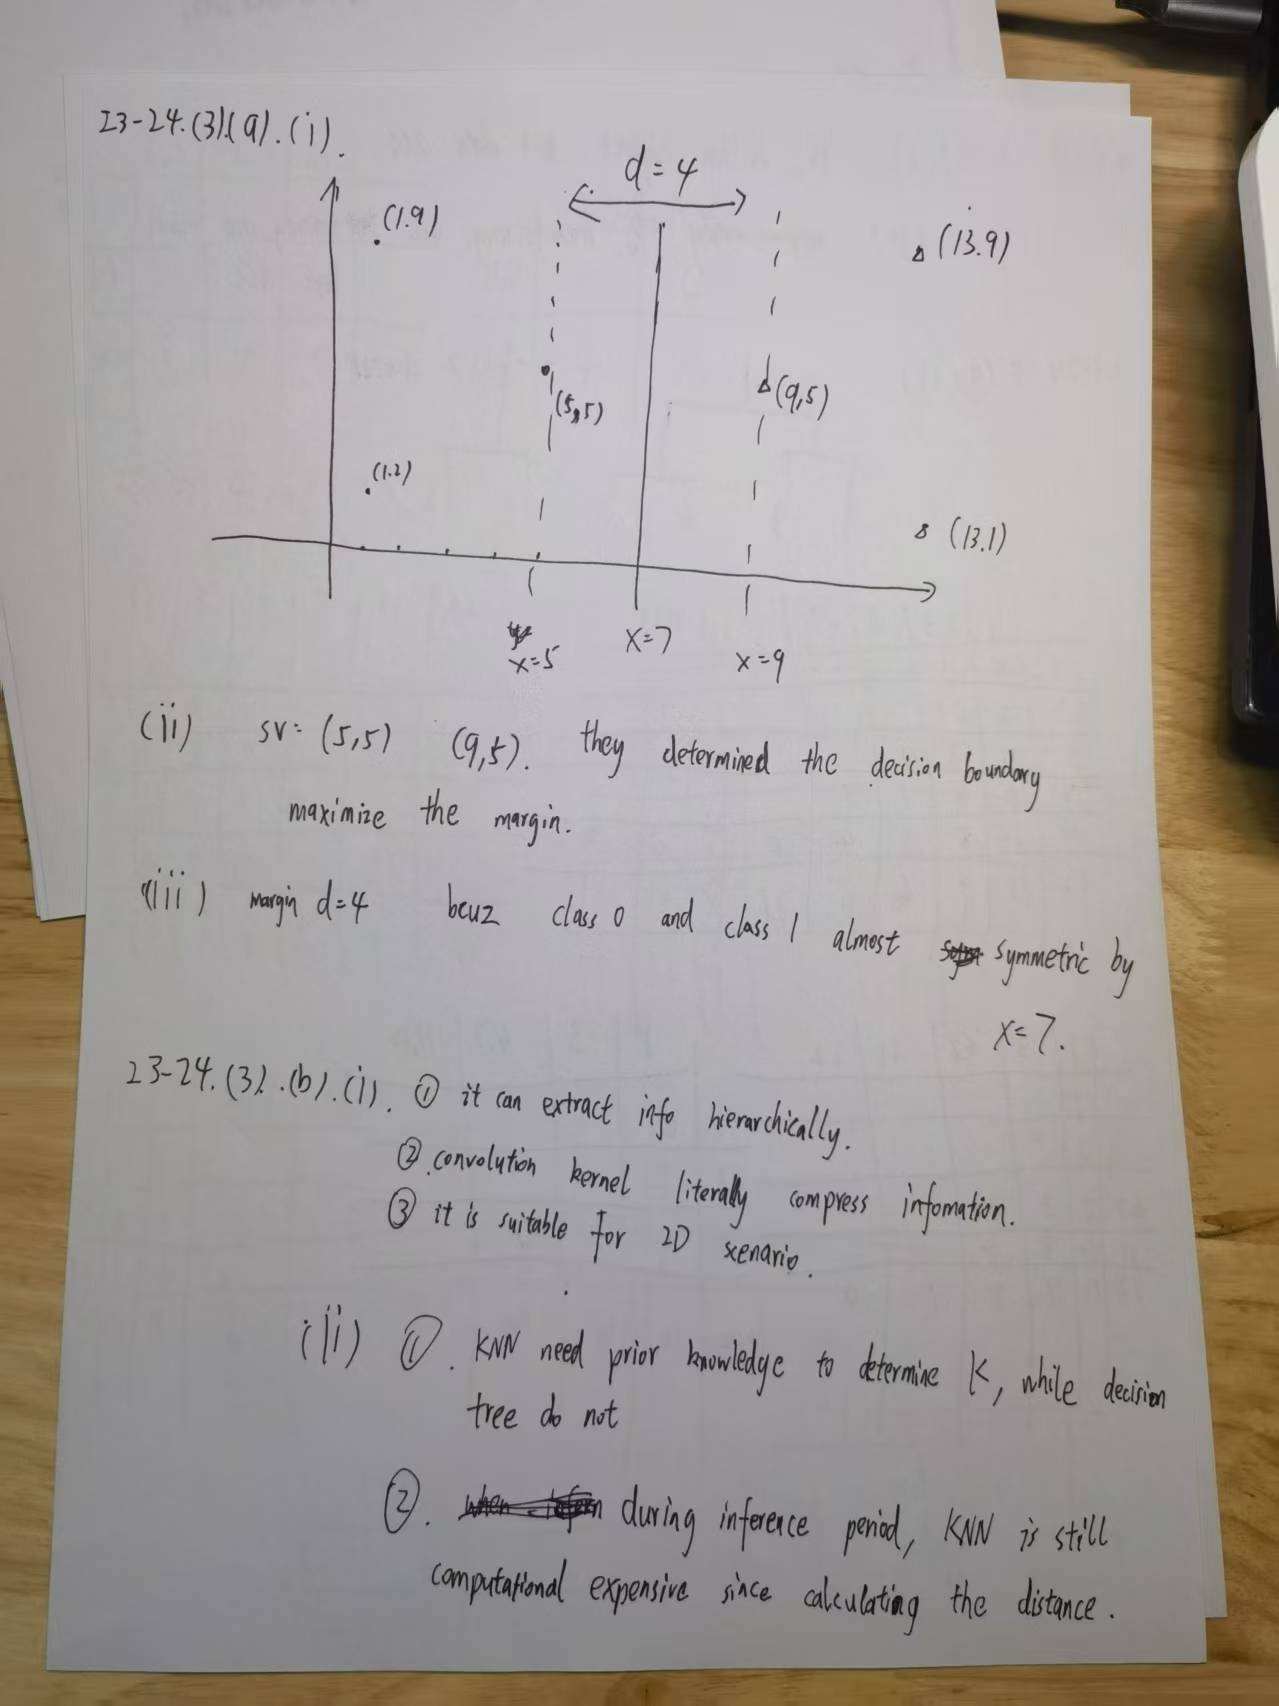 23-24.(3).(a).(i).
d=4
(1.9)
(13.9)
(5,5)
(9,5)
(1.2)
(13.1)
x=5
x=7
x=9
(ii) SV= (5,5) (9,5). they determined the decision boundary
maximize the margin.
(iii) margin d=4 bcuz class 0 and class 1 almost symmetric by
x=7.
23-24.(3).(b).(i). ① it can extract info hierarchically.
② convolution kernel literally compress infomation.
③ it is suitable for 2D scenario.
(ii) ①. KNN need prior knowledge to determine K, while decision
tree do not
②. during inference period, KNN is still
computational expensive since calculating the distance.